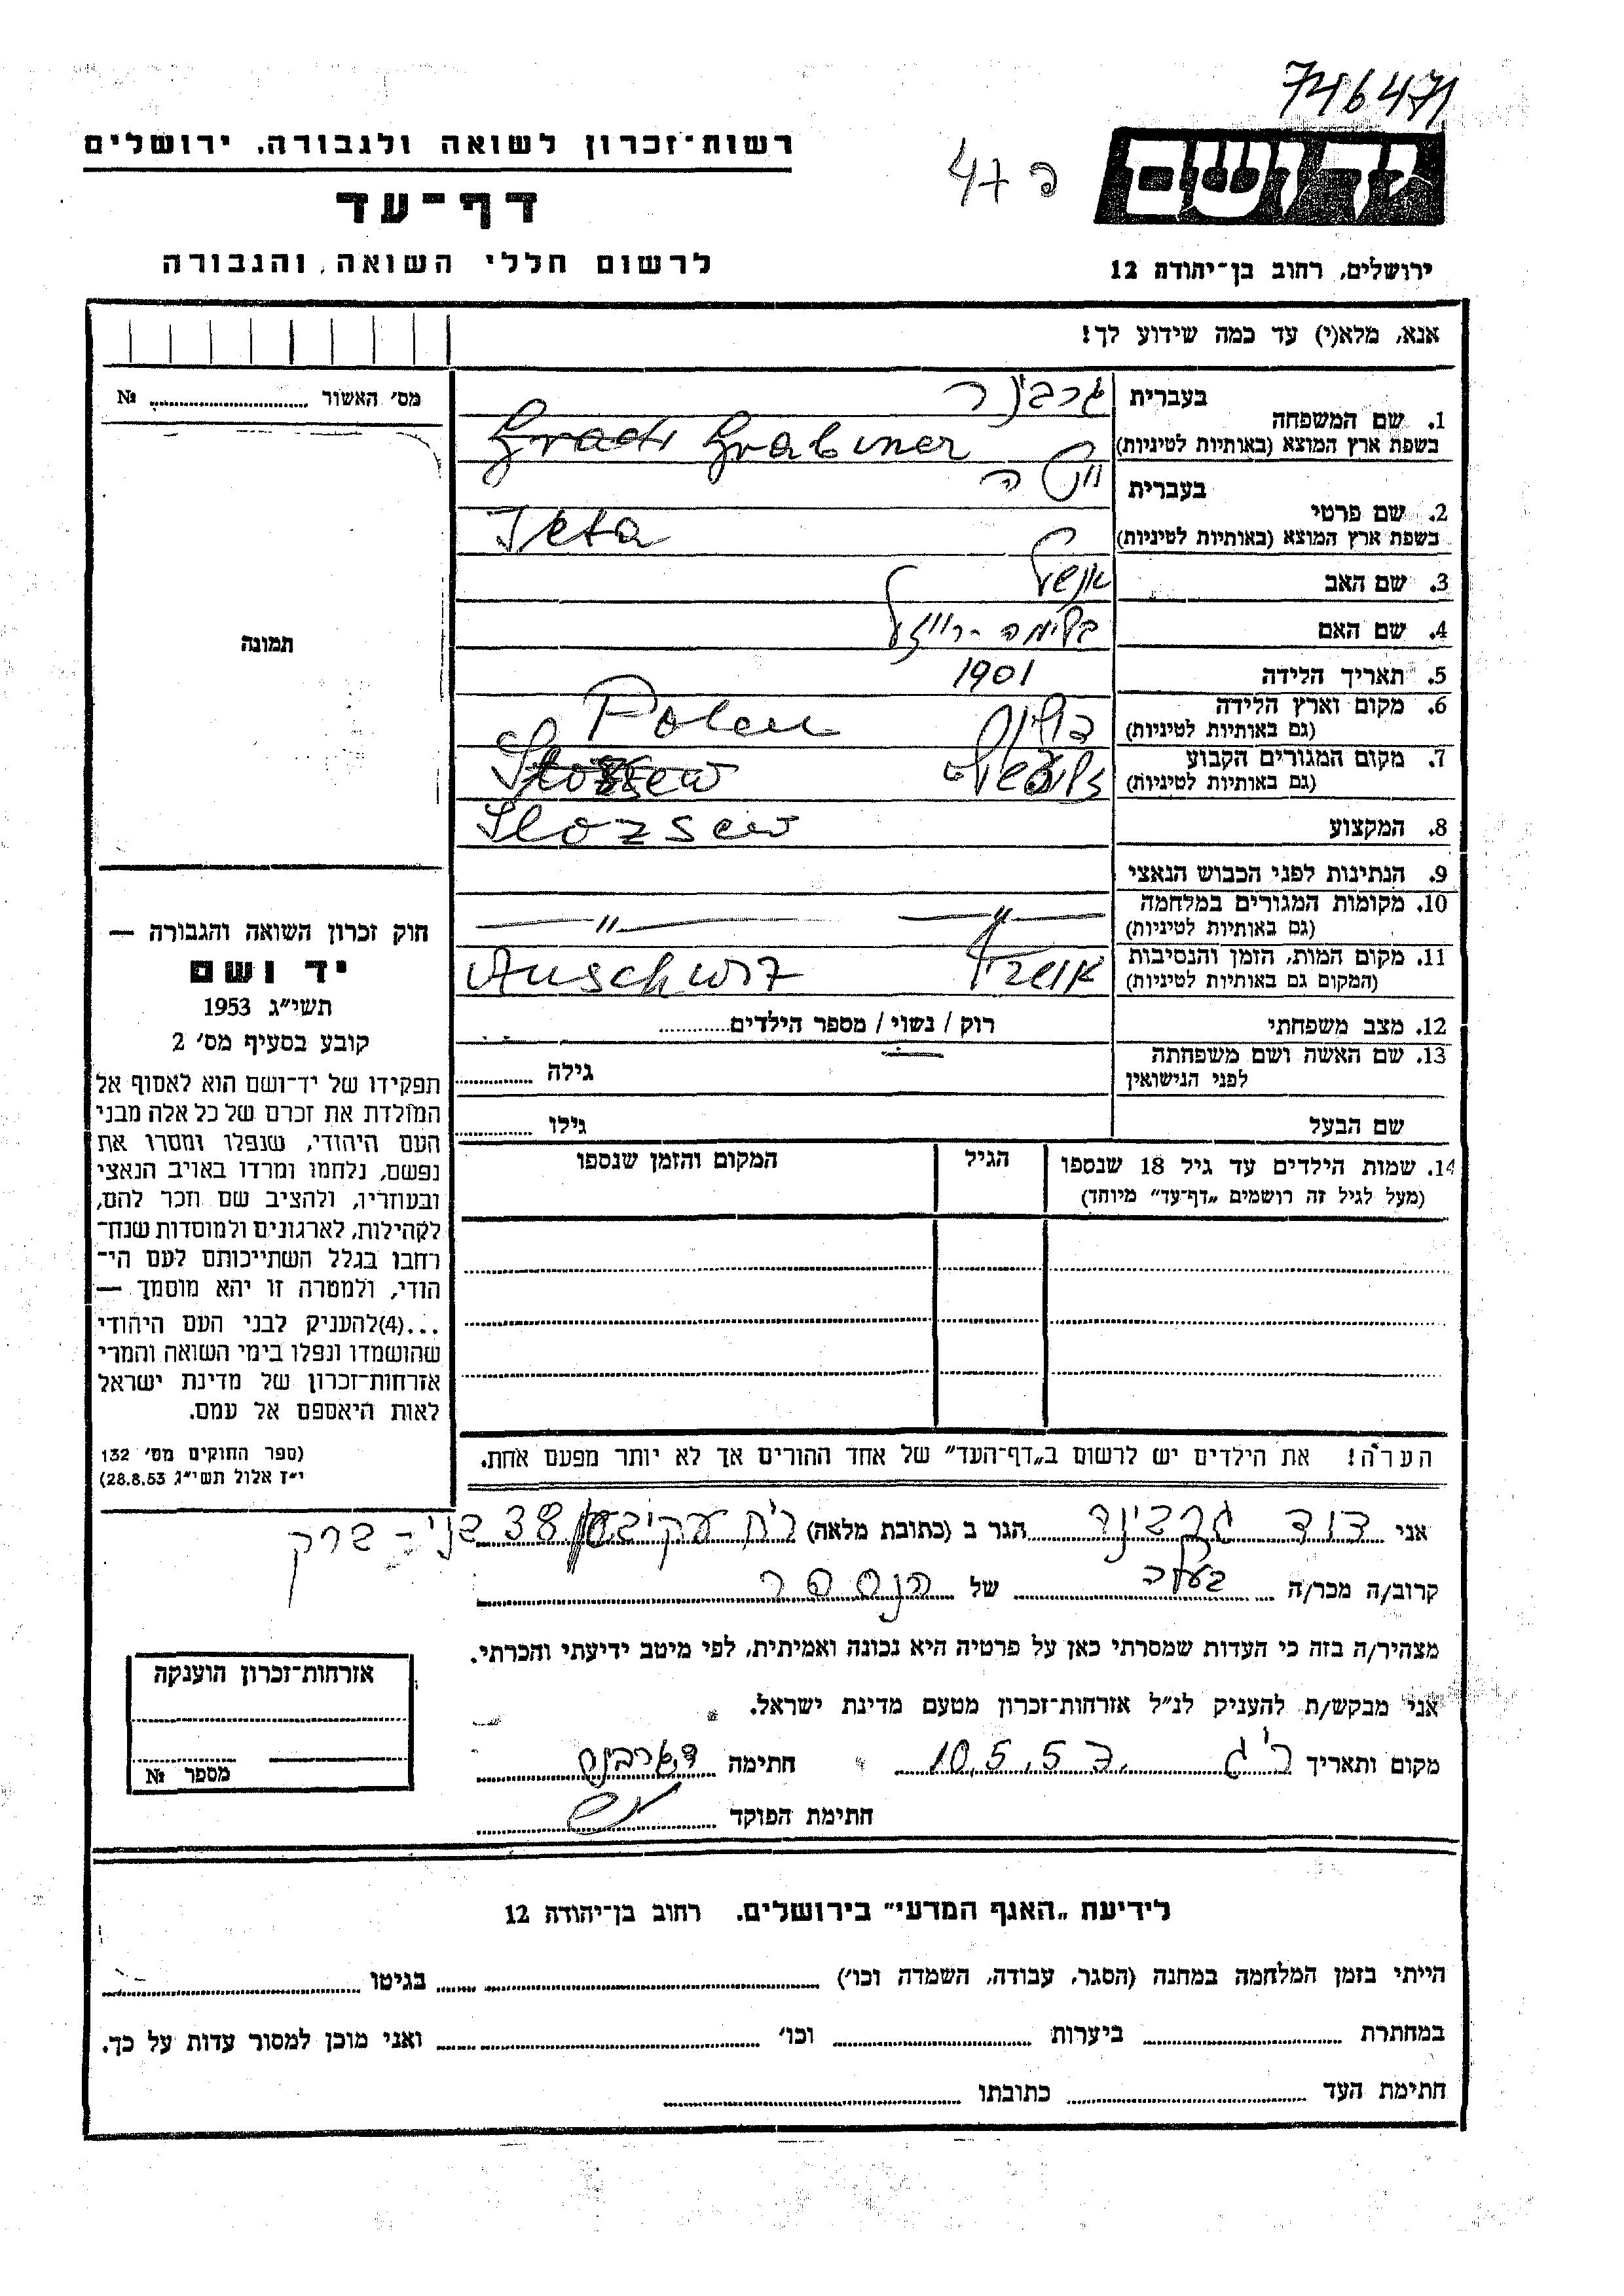 746471
רשות־זכרון לשואה ולגבורה. ירושלים
דף־עד
לרשום חללי השואה והגבורה
יד ושם
ירושלים, רחוב בן־יהודה 12
אנא, מלא(י) עד כמה שידוע לך!
מס׳ האשור № 
1. שם המשפחה בעברית גרבינר
בשפת ארץ המוצא (באותיות לטיניות) Grabiner
2. שם פרטי בעברית
בשפת ארץ המוצא (באותיות לטיניות) Jeta
3. שם האב אנשל
4. שם האם בלימה - רוויזל
5. תאריך הלידה 1901
6. מקום וארץ הלידה פולין Polen
(גם באותיות לטיניות)
7. מקום המגורים הקבוע
(גם באותיות לטיניות)
8. המקצוע Slozsew
9. הנתינות לפני הכבוש הנאצי
10. מקומות המגורים במלחמה —"— —"—
(גם באותיות לטיניות)
11. מקום המות, הזמן והנסיבות Auschwitz
(המקום גם באותיות לטיניות)
12. מצב משפחתי רוק / נשוי / מספר הילדים
13. שם האשה ושם משפחתה גילה
לפני הנישואין
שם הבעל גילו
14. שמות הילדים עד גיל 18 שנספו הגיל המקום והזמן שנספו
(מעל לגיל זה רושמים „דף־עד” מיוחד)
הערה! את הילדים יש לרשום ב„דף־העד” של אחד ההורים אך לא יותר מפעם אחת.
תמונה
חוק זכרון השואה והגבורה —
יד ושם
תשי״ג 1953
קובע בסעיף מס׳ 2
תפקידו של יד־ושם הוא לאסוף אל
המולדת את זכרם של כל אלה מבני
העם היהודי, שנפלו ומסרו את
נפשם, נלחמו ומרדו באויב הנאצי
ובעוזריו, ולהציב שם וזכר להם,
לקהילות, לארגונים ולמוסדות שנח־
רחבו בגלל השתייכותם לעם הי־
הודי, ולמטרה זו יהא מוסמך —
...(4)להעניק לבני העם היהודי
שהושמדו ונפלו בימי השואה והמרי
אזרחות־זכרון של מדינת ישראל
לאות היאספם אל עמם.
(ספר החוקים מס׳ 132
י״ז אלול תשי״ג 28.8.53)
אני דוד גרבינר הגר ב (כתובת מלאה) עקיבא 38 בני-ברק
קרוב/ה מכר/ה של הנספה
מצהיר/ה בזה כי העדות שמסרתי כאן על פרטיה היא נכונה ואמיתית, לפי מיטב ידיעתי והכרתי.
אני מבקש/ת להעניק לנ״ל אזרחות־זכרון מטעם מדינת ישראל.
מקום ותאריך ר״ג 10.5.55 חתימה
חתימת הפוקד
אזרחות־זכרון הוענקה
מספר №
לידיעת „האגף המדעי” בירושלים. רחוב בן־יהודה 12
הייתי בזמן המלחמה במחנה (הסגר, עבודה, השמדה וכו׳) בגיטו
במחתרת ביערות וכו׳ ואני מוכן למסור עדות על כך.
חתימת העד כתובתו